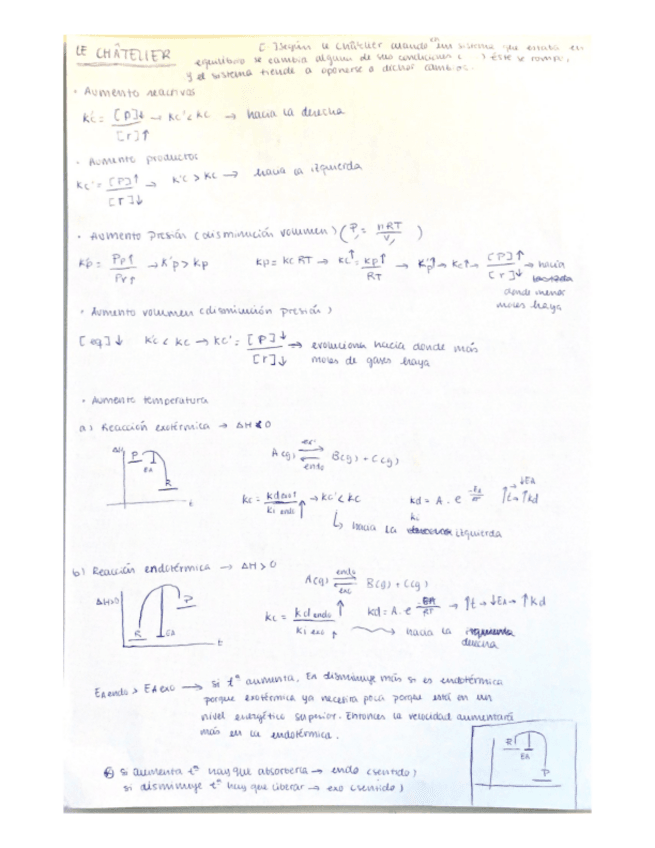 LE CHÂTELIER
[-] Según Le Châtlier cuando en un sistema que estaba en
equilibrio se cambia alguna de sus condiciones ( ) éste se rompe,
y el sistema tiende a oponerse a dichos cambios.
· Aumento reactivos
Kc' = [P]↓ / [r]↑ → Kc' < Kc → hacia la derecha
· Aumento productos
Kc' = [P]↑ / [r]↓ → K'c > Kc → hacia la izquierda
· Aumento presión (disminución volumen) (P = nRT / V)
K'p = Pp↑ / Pr↑ → K'p > Kp
Kp = Kc RT → Kc↑ = Kp↑ / RT → K'p↑ → Kc↑ → [P]↑ / [r]↓ → hacia
donde menor
moles haya
· Aumento volumen (disminución presión)
[eq]↓ K'c < Kc → Kc' = [P]↓ / [r]↓ → evoluciona hacia donde más
moles de gases haya
· Aumento temperatura
a) Reacción exotérmica → ΔH < 0
ΔH P EA R t
A(g) exo ⇌ endo B(g) + C(g)
Kc = Kd exo↑ / Ki endo ↑ → Kc' < Kc
Kd = A · e -EA / RT ↑t → ↑Kd ↓EA
Ki
↳ hacia la izquierda
b) Reacción endotérmica → ΔH > 0
A(g) endo ⇌ exo B(g) + C(g)
ΔH>0 R EA P t
Kc = Kd endo ↑ / Ki exo ↑
Kd = A · e EA / RT → ↑t → ↓EA → ↑Kd
hacia la
derecha
EA endo > EA exo → si tª aumenta, Ea disminuye más si es endotérmica
porque exotérmica ya necesita poca porque está en un
nivel energético superior. Entonces la velocidad aumentará
más en la endotérmica.
R EA P
si aumenta tª hay que absorberla → endo (sentido)
si disminuye tª hay que liberar → exo (sentido)